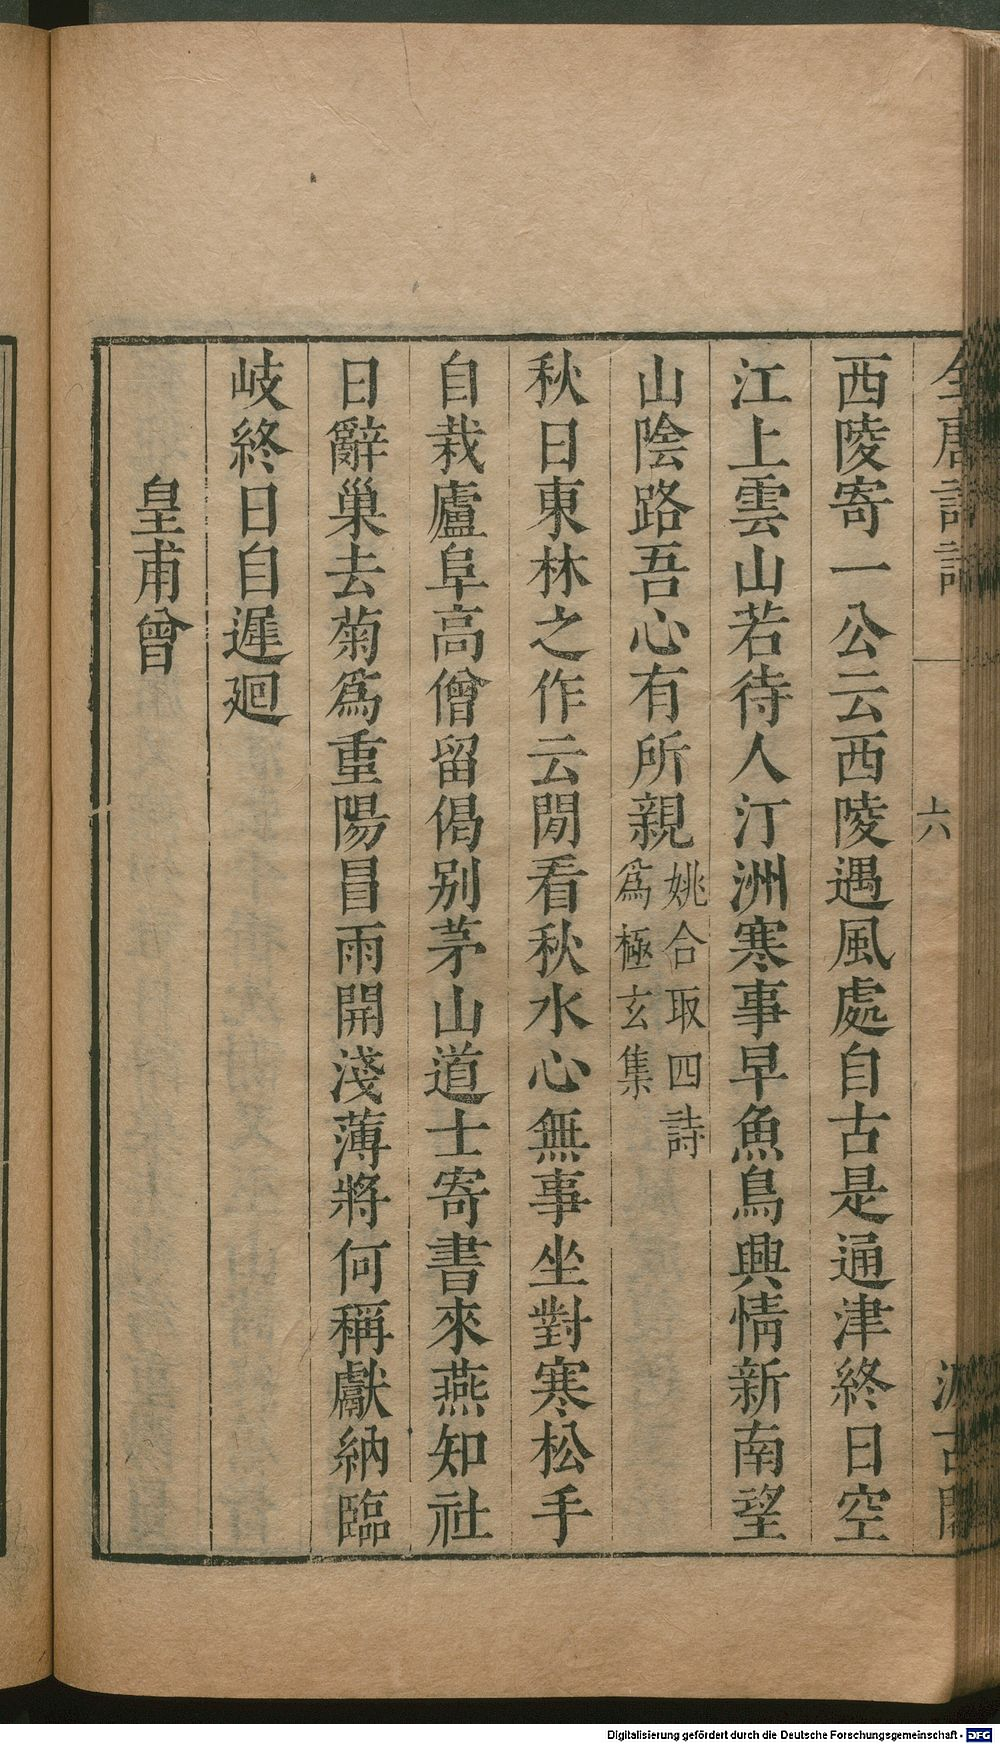 全唐詩話
六
汲古閣
西陵寄一公云西陵遇風處自古是通津終日空
江上雲山若待人汀洲寒事早魚鳥興情新南望
山陰路吾心有所親姚合取四詩
爲極玄集
秋日東林之作云閒看秋水心無事坐對寒松手
自栽廬阜高僧留偈別茅山道士寄書來燕知社
日辭巢去菊爲重陽冒雨開淺薄將何稱獻納臨
岐終日自遲廻
皇甫曾
Digitalisierung gefördert durch die Deutsche Forschungsgemeinschaft - DFG